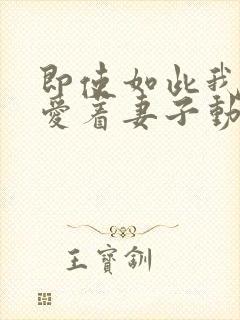 即使如此我
爱着妻子動
王寳釧